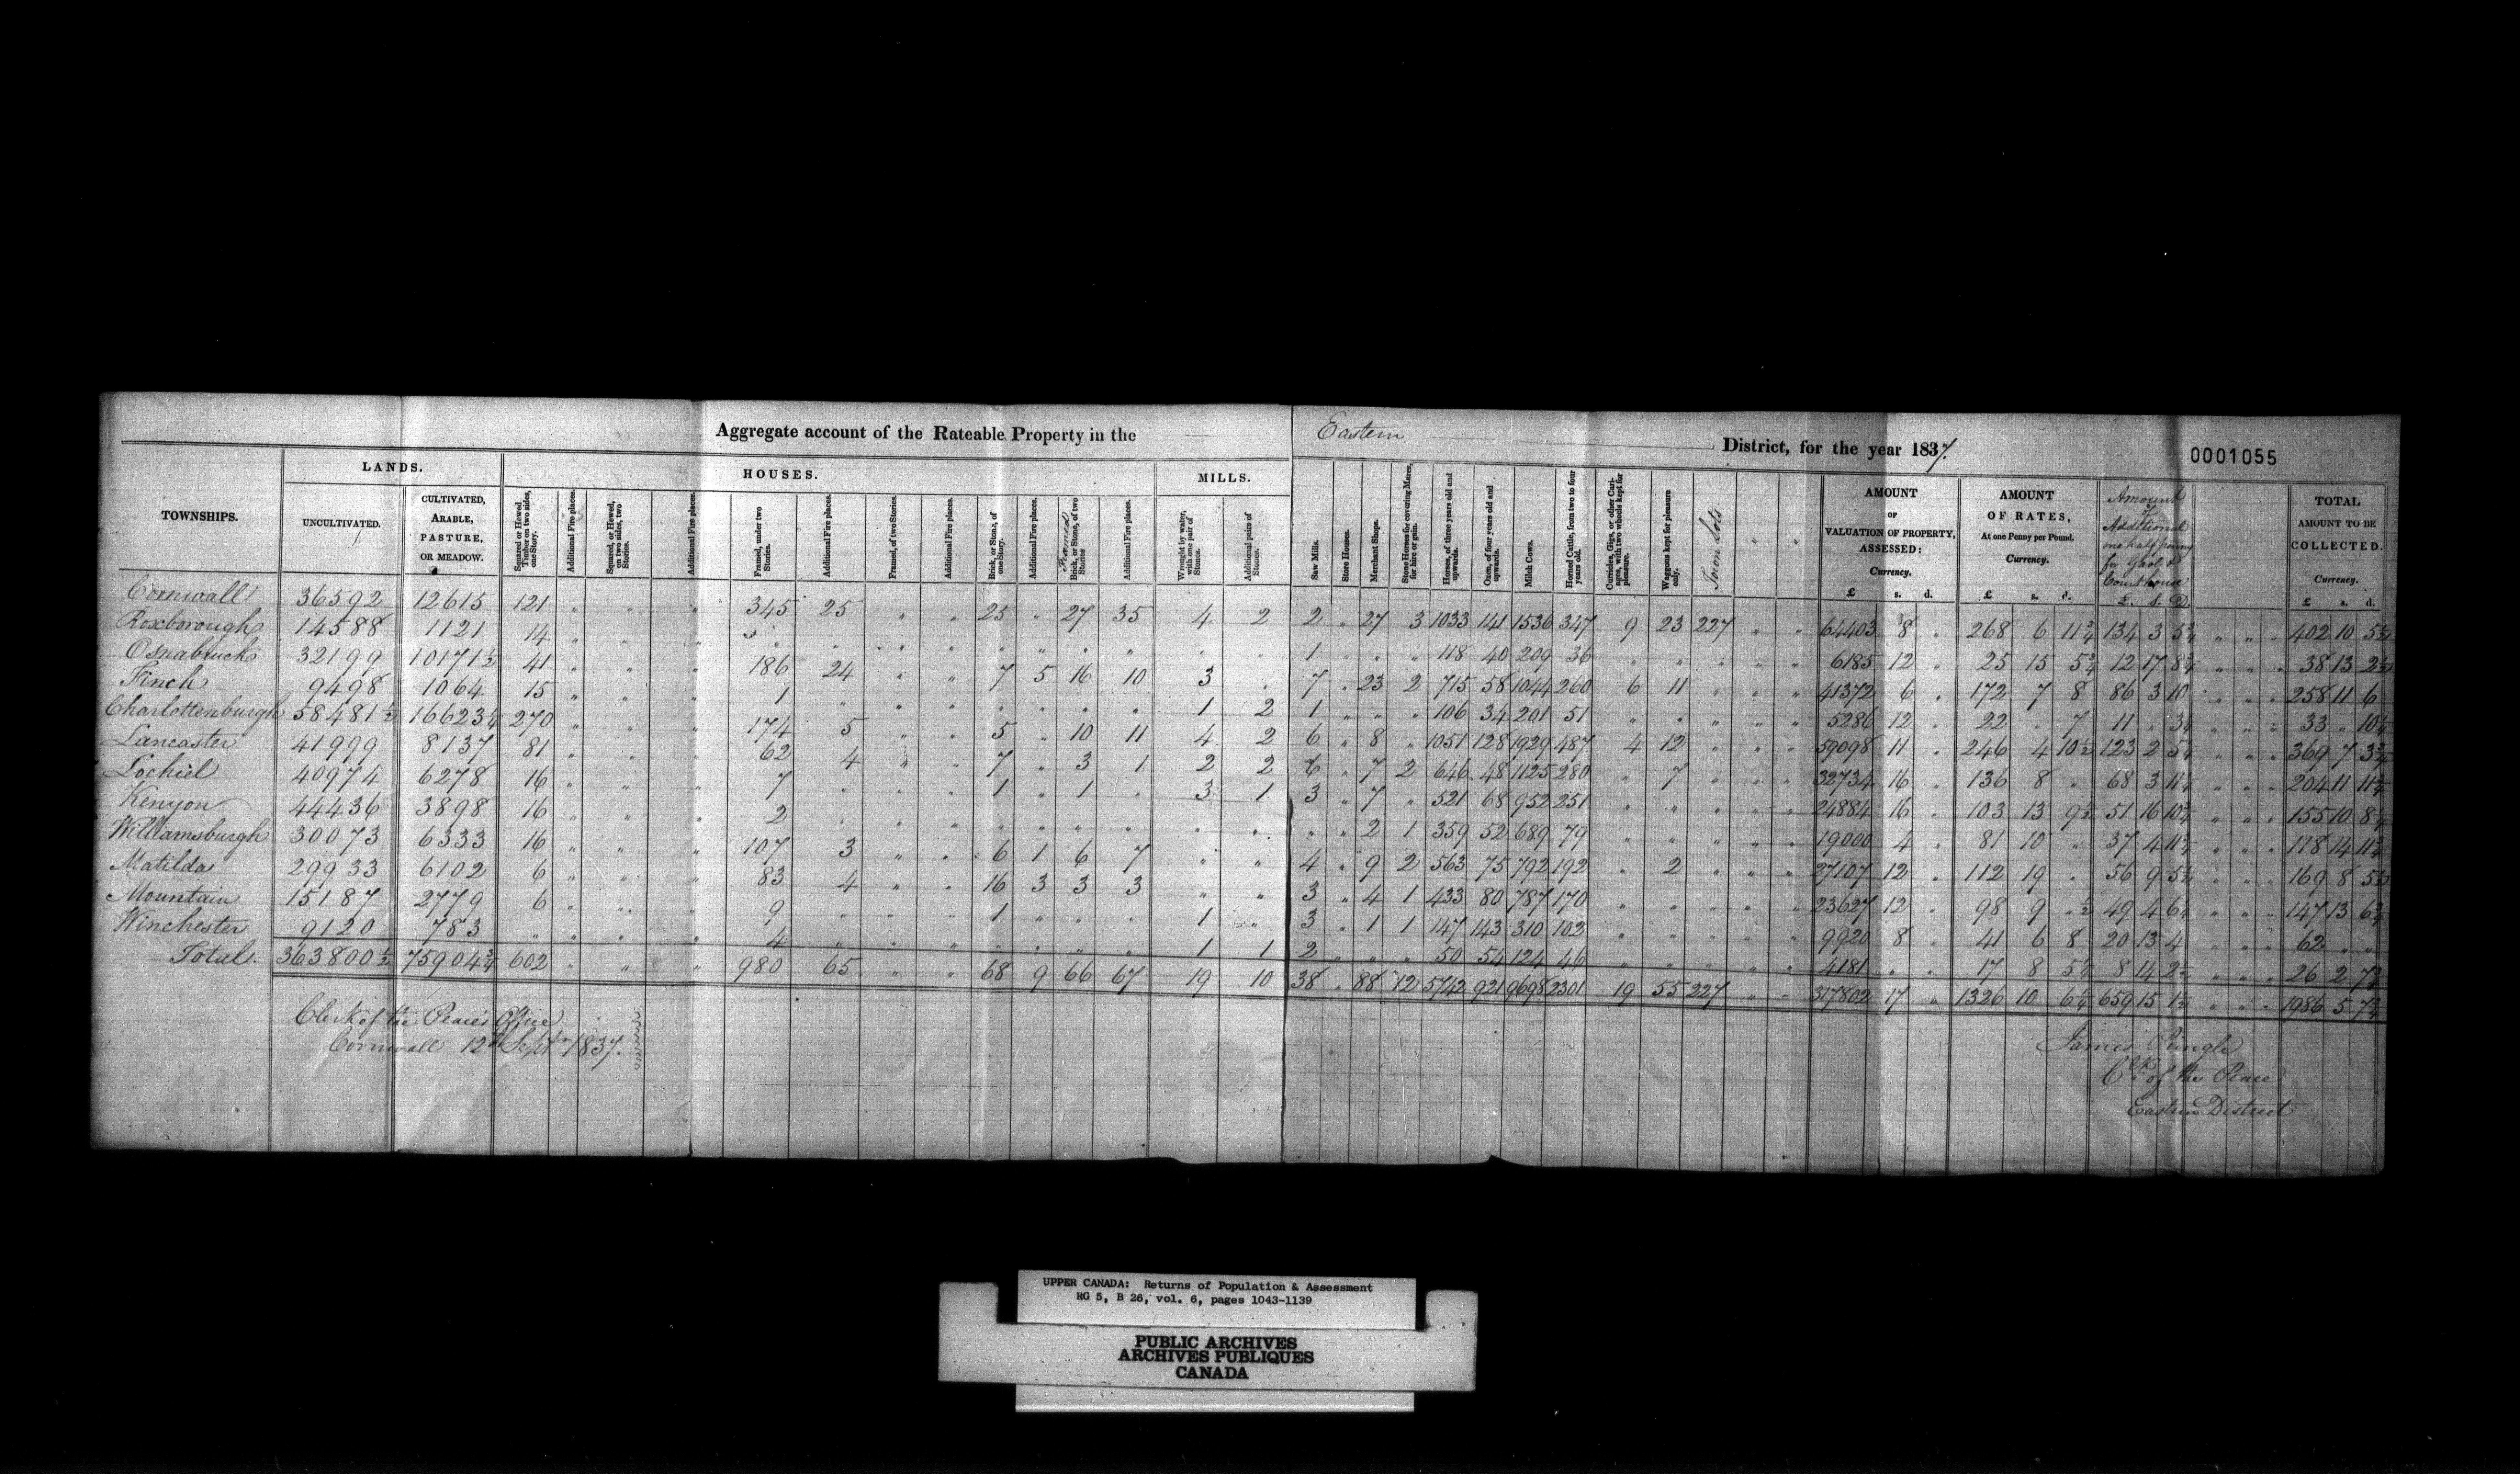 Aggregate account of the Rateable Property in the Eastern District, for the year 1837.
0001055
LANDS. HOUSES. MILLS.
TOWNSHIPS. UNCULTIVATED. CULTIVATED, ARABLE, PASTURE, OR MEADOW. Squared or Hewed Timber on two sides, one Story. Additional Fire places. Squared, or Hewed, on two sides, two Stories. Additional Fire places. Framed, under two Stories. Additional Fire places. Framed, of two Stories. Additional Fire places. Brick, or Stone, of one Story. Additional Fire places. Framed Brick, or Stone, of two Stories Additional Fire places. Wrought by water, with one pair of Stones. Additional pairs of Stones. Saw Mills. Store Houses. Merchant Shops. Stone Horses for covering Mares, for hire or gain. Horses, of three years old and upwards. Oxen, of four years old and upwards. Milch Cows. Horned Cattle, from two to four years old. Curricles, Gigs, or other Carriages, with two wheels kept for pleasure. Waggons kept for pleasure only. Town Lots " " AMOUNT OF VALUATION OF PROPERTY, ASSESSED: Currency. £ s. d. AMOUNT OF RATES, At one Penny per Pound. Currency. £ s. d. Amount of Additional one half penny for Gaol & Courthouse £. S. D. TOTAL AMOUNT TO BE COLLECTED. Currency. £ s. d.
Cornwall 36592 12615 121 " " " 345 25 " " 25 " 27 35 4 2 2 " 27 3 1033 141 1536 347 9 23 227 " " 64403 8 " 268 6 11 3/4 134 3 5 3/4 " " " 402 10 5 1/2
Roxborough 14588 1121 14 " " " " " " " " " " " " " 1 " " " 118 40 209 36 " " " " " 6185 12 " 25 15 5 3/4 12 17 8 3/4 " " " 38 13 2 1/2
Osnabruck 32199 10171 1/2 41 " " " 186 24 " " 7 5 16 10 3 " 7 " 23 2 715 58 1044 260 6 11 " " " 41372 6 " 172 7 8 86 3 10 " " " 258 11 6
Finch 9498 1064 15 " " " 1 " " " " " " " 1 2 1 " " " 106 34 201 51 " " " " " 5286 12 " 22 " 7 11 " 3 1/2 " " " 33 " 10 1/2
Charlottenburgh 58481 1/2 16623 1/4 270 " " " 174 5 " " 5 " 10 11 4 2 6 " 8 " 1051 128 1929 487 4 12 " " " 59098 11 " 246 4 10 1/2 123 2 5 1/4 " " " 369 7 3 3/4
Lancaster 41999 8137 81 " " " 62 4 " " 7 " 3 1 2 2 6 " 7 2 646 48 1125 280 " 7 " " " 32734 16 " 136 8 " 68 3 11 1/2 " " " 204 11 11 1/2
Lochiel 40974 6278 16 " " " 7 " " " 1 " 1 " 3 1 3 " 7 " 521 68 952 251 " " " " " 24884 16 " 103 13 9 1/2 51 16 10 3/4 " " " 155 10 8 1/4
Kenyon 44436 3898 16 " " " 2 " " " " " " " " " " " 2 1 359 52 689 79 " " " " " 19000 4 " 81 10 " 37 4 11 1/2 " " " 118 14 11 1/2
Williamsburgh 30073 6333 16 " " " 107 3 " " 6 1 6 7 " " 4 " 9 2 563 75 792 192 " 2 " " " 27107 12 " 112 19 " 56 9 5 1/2 " " " 169 8 5 1/2
Matilda 29933 6102 6 " " " 83 4 " " 16 3 3 3 " " 3 " 4 1 433 80 787 170 " " " " " 23627 12 " 98 9 " 1/2 49 4 6 1/4 " " " 147 13 6 3/4
Mountain 15187 2779 6 " " " 9 " " " 1 " " " 1 " 3 " 1 1 147 143 310 102 " " " " " 9920 8 " 41 6 8 20 13 4 " " " 62 " "
Winchester 9120 783 " " " " 4 " " " " " " " 1 1 2 " " " 50 54 124 46 " " " " " 4181 " " 17 8 5 1/4 8 14 2 1/2 " " " 26 2 7 3/4
Total. 363800 1/2 75904 3/4 602 " " " 980 65 " " 68 9 66 67 19 10 38 " 88 12 5742 921 9698 2301 19 55 227 " " 317802 17 " 1326 10 6 1/4 659 15 1 1/2 " " " 1986 5 7 3/4
Clerk of the Peace's Office
Cornwall 12th Septr 1837.
James Pringle
Clk of the Peace
Eastern District
UPPER CANADA: Returns of Population & Assessment
RG 5, B 26, vol. 6, pages 1043-1139
PUBLIC ARCHIVES
ARCHIVES PUBLIQUES
CANADA